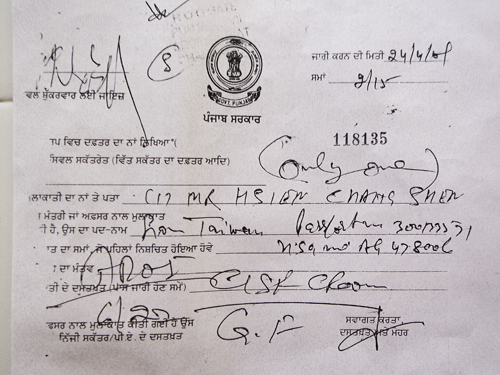 ਜਾਰੀ ਕਰਨ ਦੀ ਮਿਤੀ 24/4/08
ਸਮਾਂ 2/15
8
ਵਲ ਸ਼ੁੱਕਰਵਾਰ ਲਈ ਜਾਇਜ਼
GOVT. PUNJAB
ਪੰਜਾਬ ਸਰਕਾਰ
118135
ਵਿਚ ਦਫ਼ਤਰ ਦਾ ਨਾਂ ਲਿਖਿਆ
ਸਿਵਲ ਸਕੱਤਰੇਤ (ਵਿੱਤ ਸਕੱਤਰ ਦਾ ਦਫ਼ਤਰ ਆਦਿ)
(only one)
ਲਾਕਾਤੀ ਦਾ ਨਾਂ ਤੇ ਪਤਾ MR HSIEN CHANG SHEN
ਮੰਤਰੀ ਜਾਂ ਅਫ਼ਸਰ ਨਾਲ ਮੁਲਾਕਾਤ
ਹੈ, ਉਸ ਦਾ ਪਦ-ਨਾਮ from Taiwan Passport no
ਾਤ ਦਾ ਸਮਾਂ, ਜੋ ਪਹਿਲਾਂ ਨਿਸ਼ਚਿਤ ਹੋਇਆ ਹੋਵੇ
ਦਾ ਮੰਤਵ
ਤੀ ਦੇ ਦਸਤਖ਼ਤ (ਪਾਸ ਜਾਰੀ ਹੋਣ ਸਮੇਂ) CISF
ਫ਼ਸਰ ਨਾਲ ਮੁਲਾਕਾਤ ਕੀਤੀ ਗਈ ਹੈ ਉਸ
ਨਿੱਜੀ ਸਕੱਤਰ/ਪੀ.ਏ. ਦੇ ਦਸਤਖ਼ਤ
G.F
ਸਵਾਗਤ ਕਰਤਾ
ਦਸਤਖ਼ਤ ਅਤੇ ਮੋਹਰ